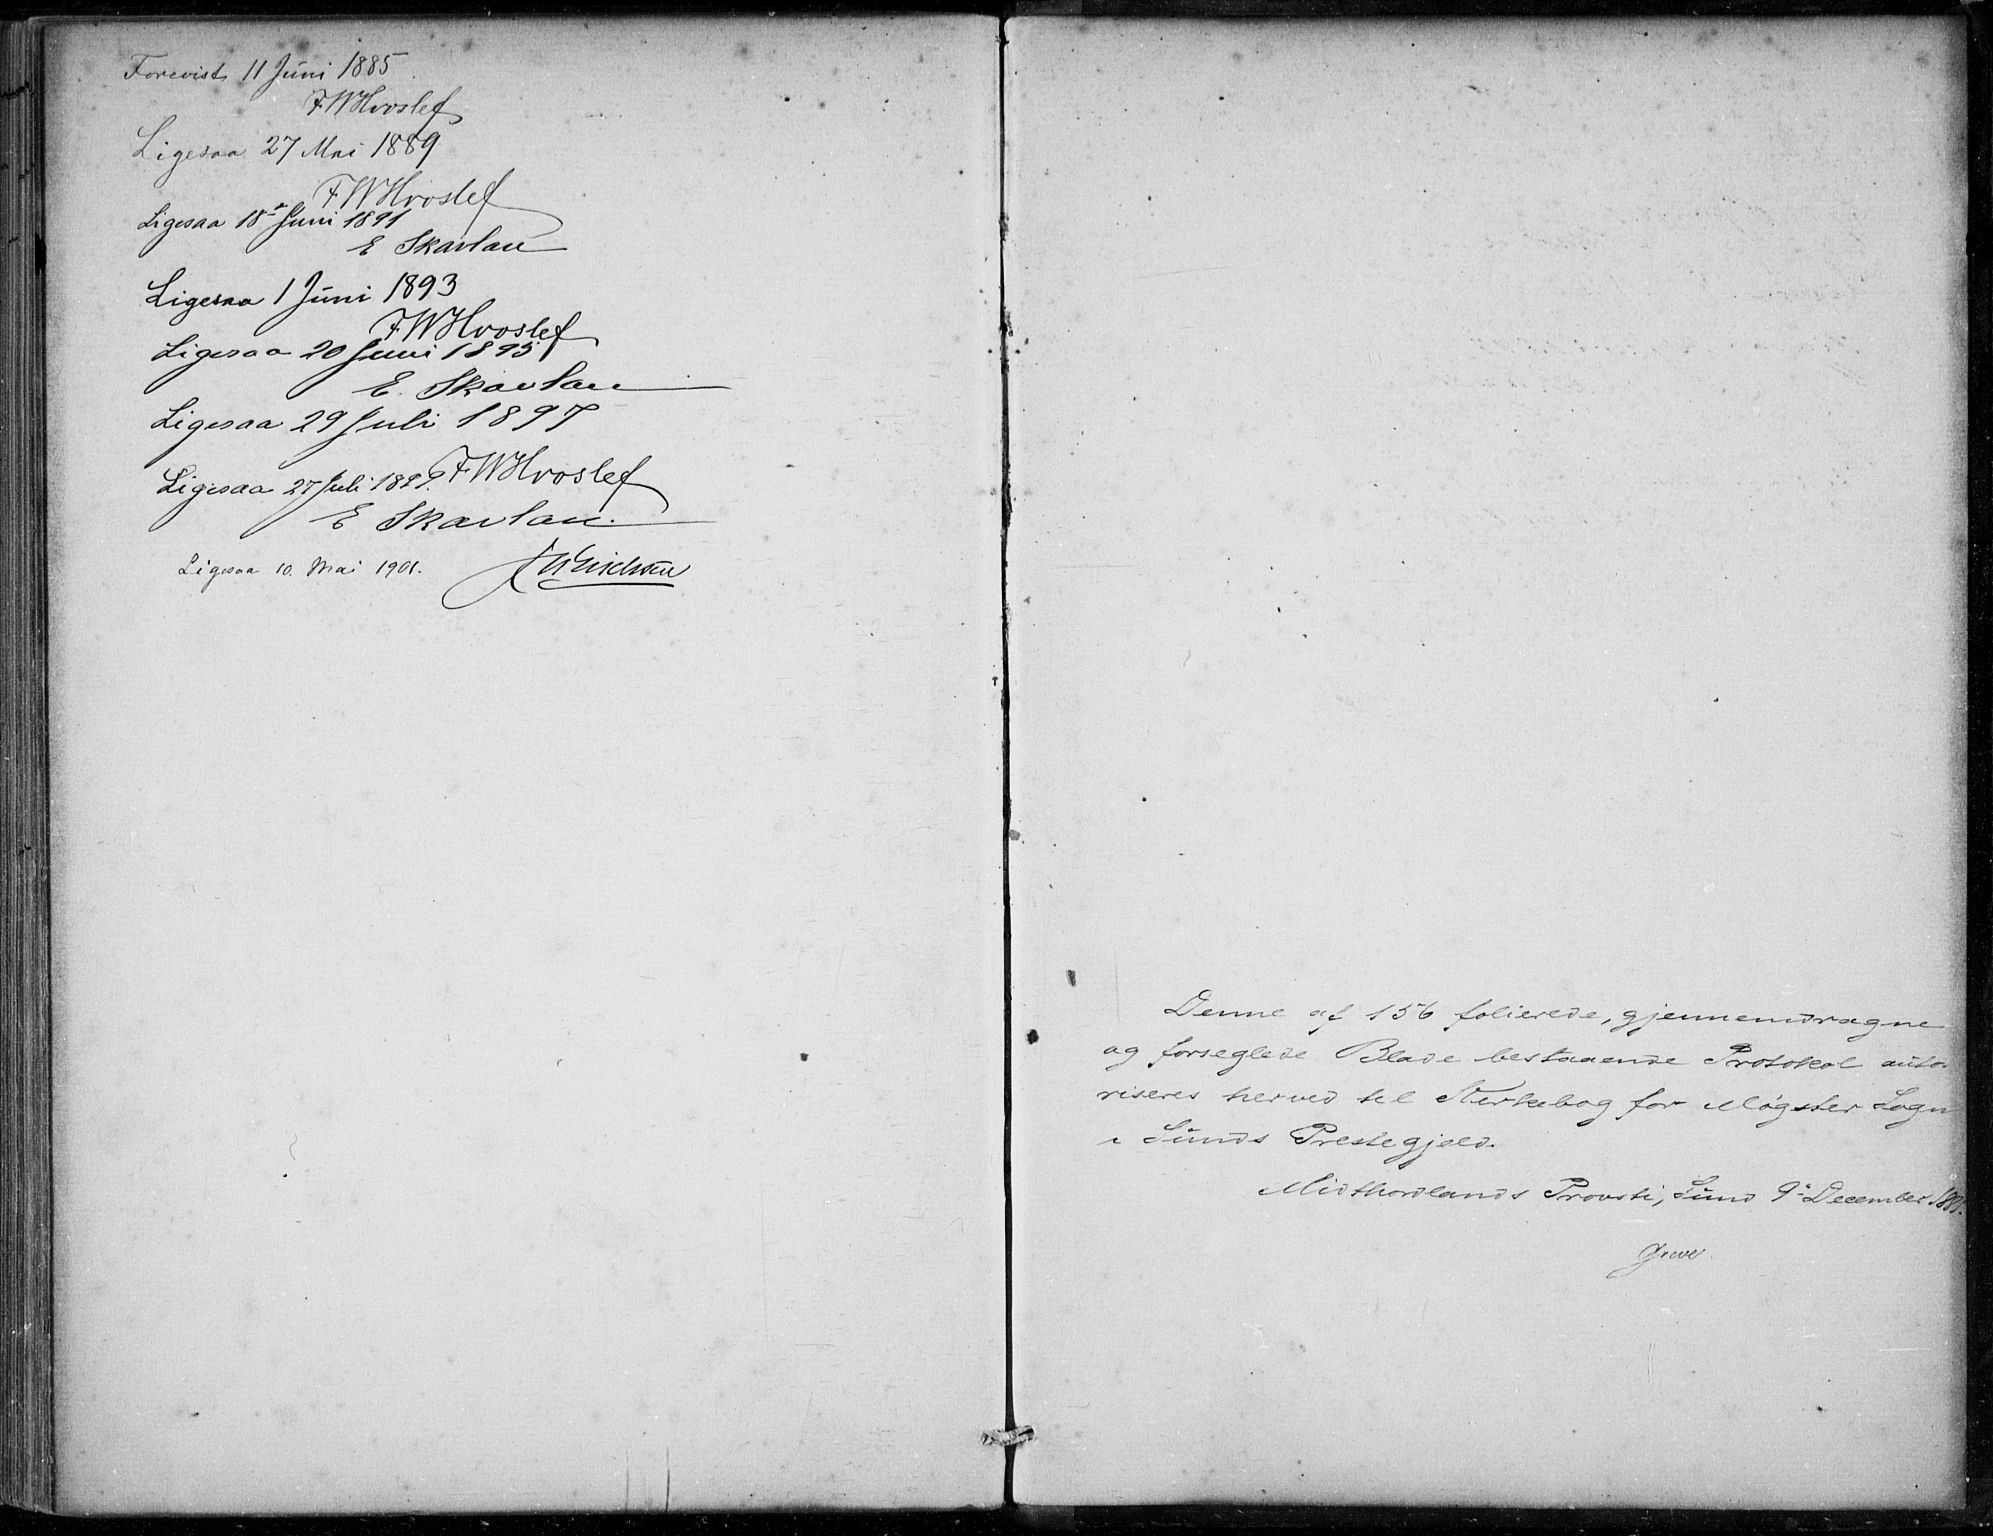 Forevist 11 Juni 1885
FWHvoslef
Ligesaa 27 Mai 1889
FWHvoslef
Ligesaa 18de Juni 1891
E Skavlan
Ligesaa 1 Juni 1893
FWHvoslef
Ligesaa 20 Juni 1895
E. Skavlan
Ligesaa 29 Juli 1897
FWHvoslef
Ligesaa 27 Juli 1899.
E Skavlan.
Ligesaa 10. Mai 1901.
Denne af 156 folierede, gjennemdragne
og forseglede Blade bestaaende Protokol auto-
riseres herved til Kirkebog for Møgster Sogn
i Sunds Prestegjeld.
Midthordlands Provsti, Sund 9de December
Greve.